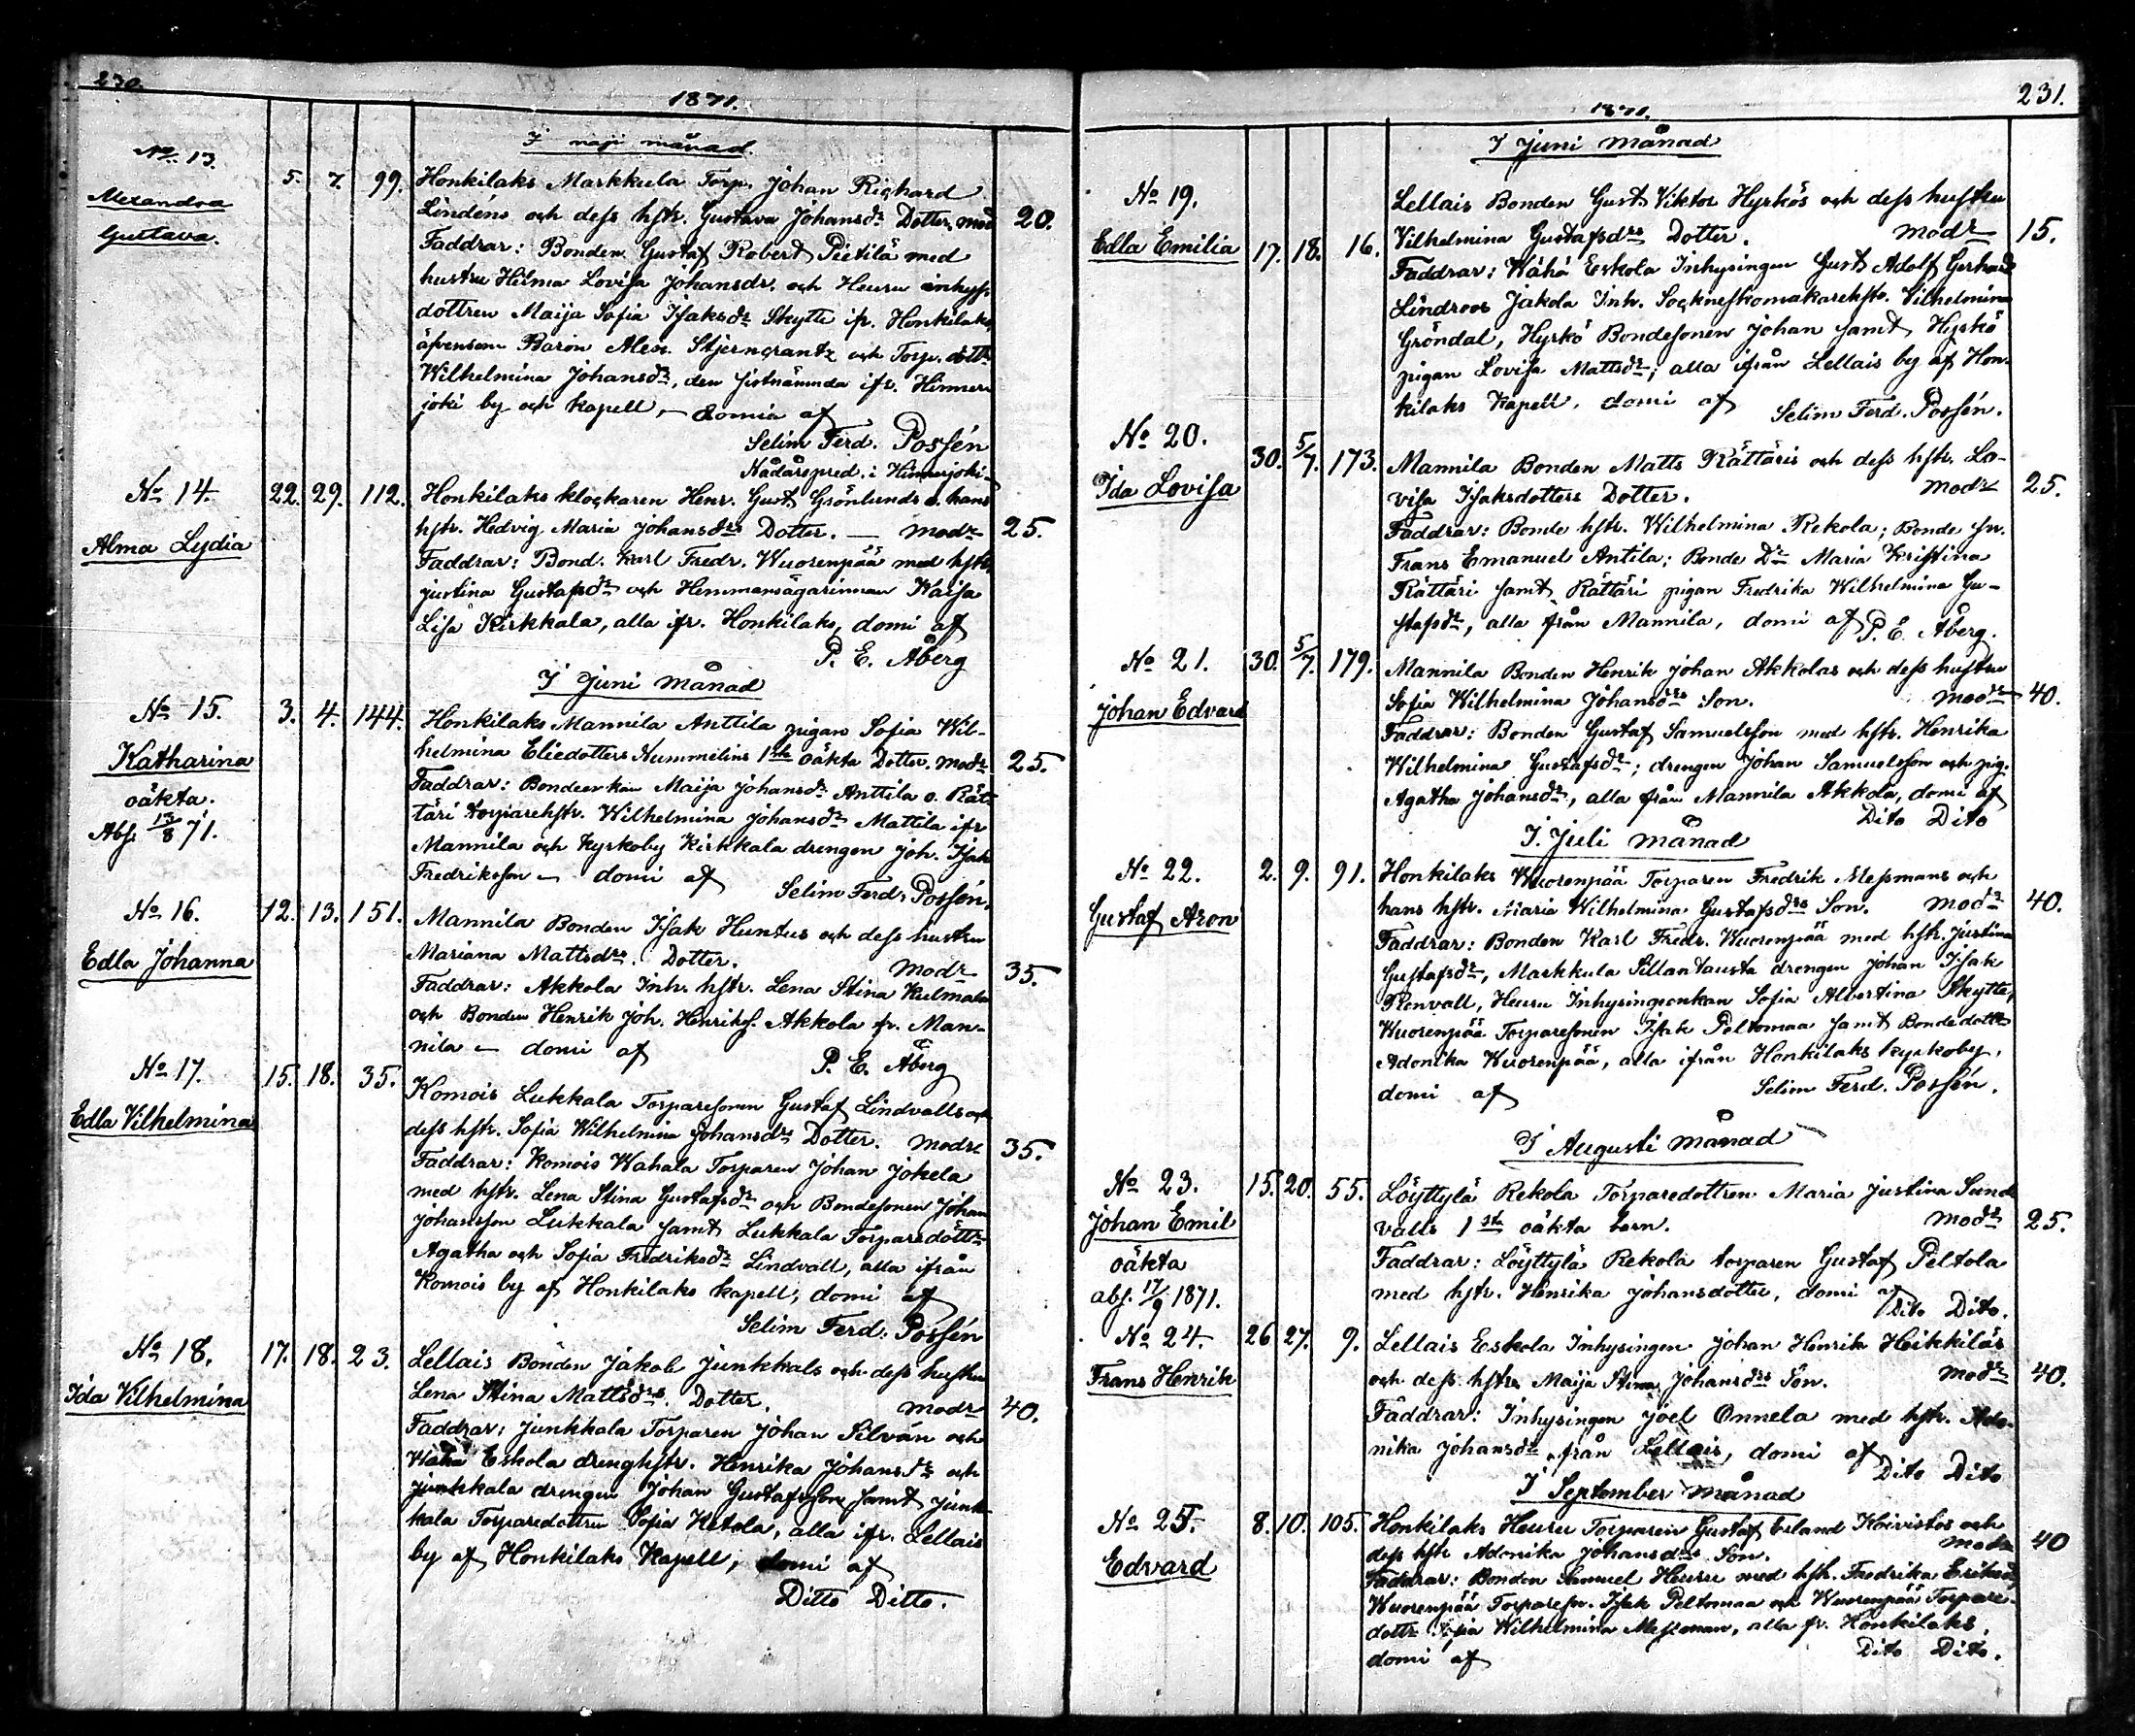 230.
1871.
I maji månad.
No 13.
Alexandra
Gustava.
5. 7. 99. Honkilaks Markkula Torp. Johan Richard
Lindéns och dess hstr. Gustava Johansdr Dotter, mod 20.
Faddrar: Bonden Gustaf Robert Pietilä med
hustru Hilma Lovisa Johansdr. och Heuru inhys.
dottren Maija Sofia Isaksdr Skytte ifr. Honkilaks,
äfvensom Baron Alex. Stjerncrantz och Torp. dottr
Wilhelmina Johansdr, den sistnämnda ifr. Hinner
joki by och kapell, — domia af
Selim Ferd. Possén
Nådårspred. i Hinnerjoki
No 14.
Alma Lydia
22. 29. 112. Honkilaks klockaren Henr. Gust. Grönlunds o. hans
hstr. Hedvig Maria Johansdrs Dotter. — modr 25.
Faddrar: Bond. Karl Fredr. Wuorenpää med hstr.
Justina Gustafsdr och Hemmansägarinnan Kaisa
Lisa Kirkkala, alla ifr. Honkilaks, domi af
P. E. Åberg
I Juni månad
No 15.
Katharina
oäkta.
Abs. 13/8 71.
3. 4. 144. Honkilaks Mannila Anttila pigan Sofia Wil-
helmina Eliedotters Nummelins 1sta oäkta Dotter. modr 25.
Faddrar: Bondeenkan Maija Johansdr Anttila o. Rät-
täri torparehstr. Wilhelmina Johansdr Mattila ifr
Mannila och Kyrkoby Kirkkala drengen Joh. Isak
Fredriksson — domi af
Selim Ferd. Possén.
No 16.
Edla Johanna
12. 13. 151. Mannila Bonden Isak Huntus och dess hustru
Mariana Mattsdrs. Dotter. modr 35.
Faddrar: Akkola Inh. hstr. Lena Stina Kulmala
och Bonden Henrik Joh. Henrikss. Akkola fr. Man-
nila — domi af
P. E. Åberg
No 17.
Edla Vilhelmina
15. 18. 35. Komois Lukkala Torparesonen Gustaf Lindvalls och
dess hstr. Sofia Wilhelmina Johansdrs Dotter. modr 35.
Faddrar: Komois Wahala Torparen Johan Jokela
med hstr. Lena Stina Gustafsdr och Bondesonen Johan
Johansson Lukkala samt Lukkala Torparedöttr
Agatha och Sofia Fredriksdr Lindvall, alla ifrån
Komois by af Honkilaks kapell, domi af
Selim Ferd. Possén
No 18.
Ida Vilhelmina
17. 18. 23. Lellais Bonden Jakob Junkkals och dess hustru
Lena Stina Mattsdrs. Dotter. modr 40.
Faddrar: Junkkala Torparen Johan Silván och
Wähä Eskola drenghstr. Henrika Johansdr och
Junkkala drengen Johan Gustafsson samt Junk-
kala Torparedottren Sofia Ketola, alla ifr. Lellais
by af Honkilaks Kapell, domi af
Ditto Ditto.
231.
1871.
I Juni månad
No 19.
Edla Emilia
17. 18. 16. Lellais Bonden Gust. Viktor Hyrkös och dess hustru
Vilhelmina Gustafsdrs Dotter. modr 15.
Faddrar: Wähä Eskola Inhysingen Gust. Adolf Gerhard
Lindroos Jakola Inh. Sockneskomakarehstr. Vilhelmina
Gröndal, Hyrkö Bondesonen Johan samt Hyrkö
pigan Lovisa Mattsdr; alla ifrån Lellais by af Hon-
kilaks Kapell. domi af
Selim Ferd. Possén.
No 20.
Ida Lovisa
30. 5/7. 173. Mannila Bonden Matts Rättäris och dess hstr. Lo-
visa Isaksdotters Dotter. modr 25.
Faddrar: Bonde hstr. Wilhelmina Rekola; Bonde sn.
Frans Emanuel Antila; Bonde Dr Maria Kristina
Rättäri samt Rättäri pigan Fredrika Wilhelmina Gu-
stafsdr, alla från Mannila, domi af
P. E. Åberg.
No 21.
Johan Edvard
30. 5/7. 179. Mannila Bonden Henrik Johan Akkolas och dess hustru
Sofia Wilhelmina Johansdrs Son. modr 40.
Faddrar: Bonden Gustaf Samuelsson med hstr. Henrika
Wilhelmina Gustafsdr; drengen Johan Samuelsson och pig.
Agatha Johansdr, alla från Mannila Akkola, domi af
Dito Dito
I Juli månad
No 22.
Gustaf Aron
2. 9. 91. Honkilaks Wuorenpää Torparen Fredrik Messmans och
hans hstr. Maria Wilhelmina Gustafsdrs Son. modr 40.
Faddrar: Bonden Karl Fredr. Wuorenpää med hstr. Justina
Gustafsdr, Markkula Sillantausta drengen Johan Isak
Renvall, Heuru Inhysingeenkan Sofia Albertina Skytte,
Wuorenpää Torparesonen Isak Peltomaa samt Bondedottr
Adonika Wuorenpää, alla ifrån Honkilaks kyrkoby,
domi af
Selim Ferd. Possén.
I Augusti månad
No 23.
Johan Emil
oäkta
abs. 17/9 1871.
15. 20. 55. Löyttylä Rekola Torparedottren Maria Justina Sund-
valls 1sta oäkta barn. modr 25.
Faddrar: Löyttylä Rekola torparen Gustaf Peltola
med hstr. Henrika Johansdotter, domi af
Dito Dito.
No 24.
Frans Henrik
26 27. 9. Lellais Eskola Inhysingen Johan Henrik Heikkiläs
och dess hstr. Maija Stina Johansdrs Son. modr 40.
Faddrar: Inhysingen Joel Onnela med hstr. Ado-
nika Johansdr från Lellais, domi af
Dito Dito
I September månad
No 25.
Edvard
8. 10. 105. Honkilaks Heuru Torparen Gustaf Erland Koivistos och
dess hstr Adonika Johansdrs Son. modr 40
Faddrar: Bonden Samuel Heuru med hstr. Fredrika Eriksdr,
Wuorenpää Torparesn. Isak Peltomaa och Wuorenpää Torpare-
dottr Sofia Wilhelmina Messman, alla fr. Honkilaks.
domi af
Dito Dito.